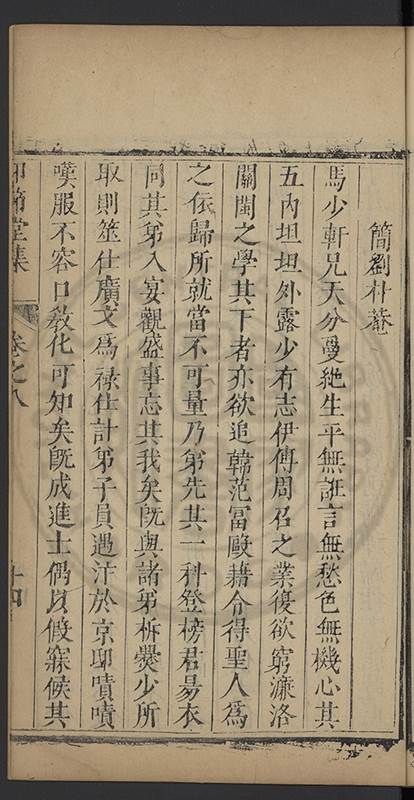 簡劉朴菴
馬少軒兄天分敻絶生平無誑言無愁色無機心其
五内坦坦外露少有志伊傅周召之業復欲窮濂洛
關閩之學其下者亦欲追韓范冨歐藉令得聖人爲
之依歸所就當不可量乃弟先其一科登榜君易衣
同其弟入宴觀盛事忘其我矣旣與諸弟析爨少所
取則筮仕廣文爲禄仕計弟子員遇汴於京邸嘖嘖
嘆服不容口敎化可知矣旣成進士偶以假寐候其
堂集
卷之八
十四